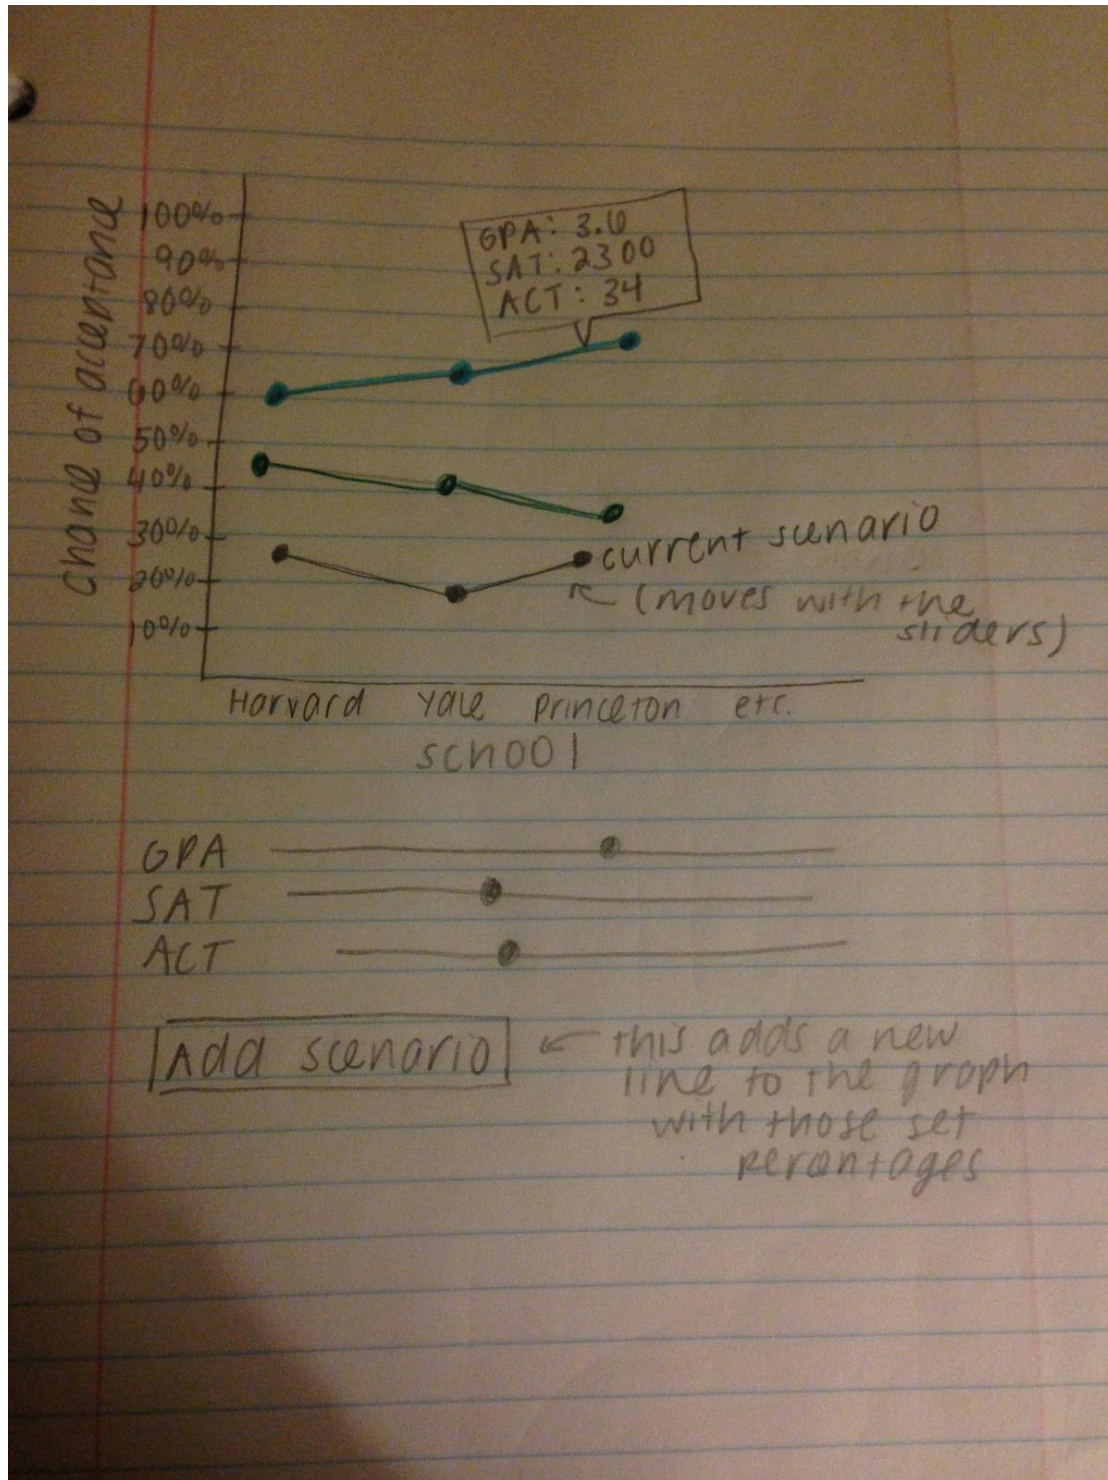 Chance of acceptance
100%
90%
80%
70%
60%
50%
40%
30%
20%
10%
GPA: 3.6
SAT: 2300
ACT: 34
current scenario
(moves with the
sliders)
Harvard Yale Princeton etc.
school
GPA
SAT
ACT
Add scenario
this adds a new
line to the graph
with those set
percentages